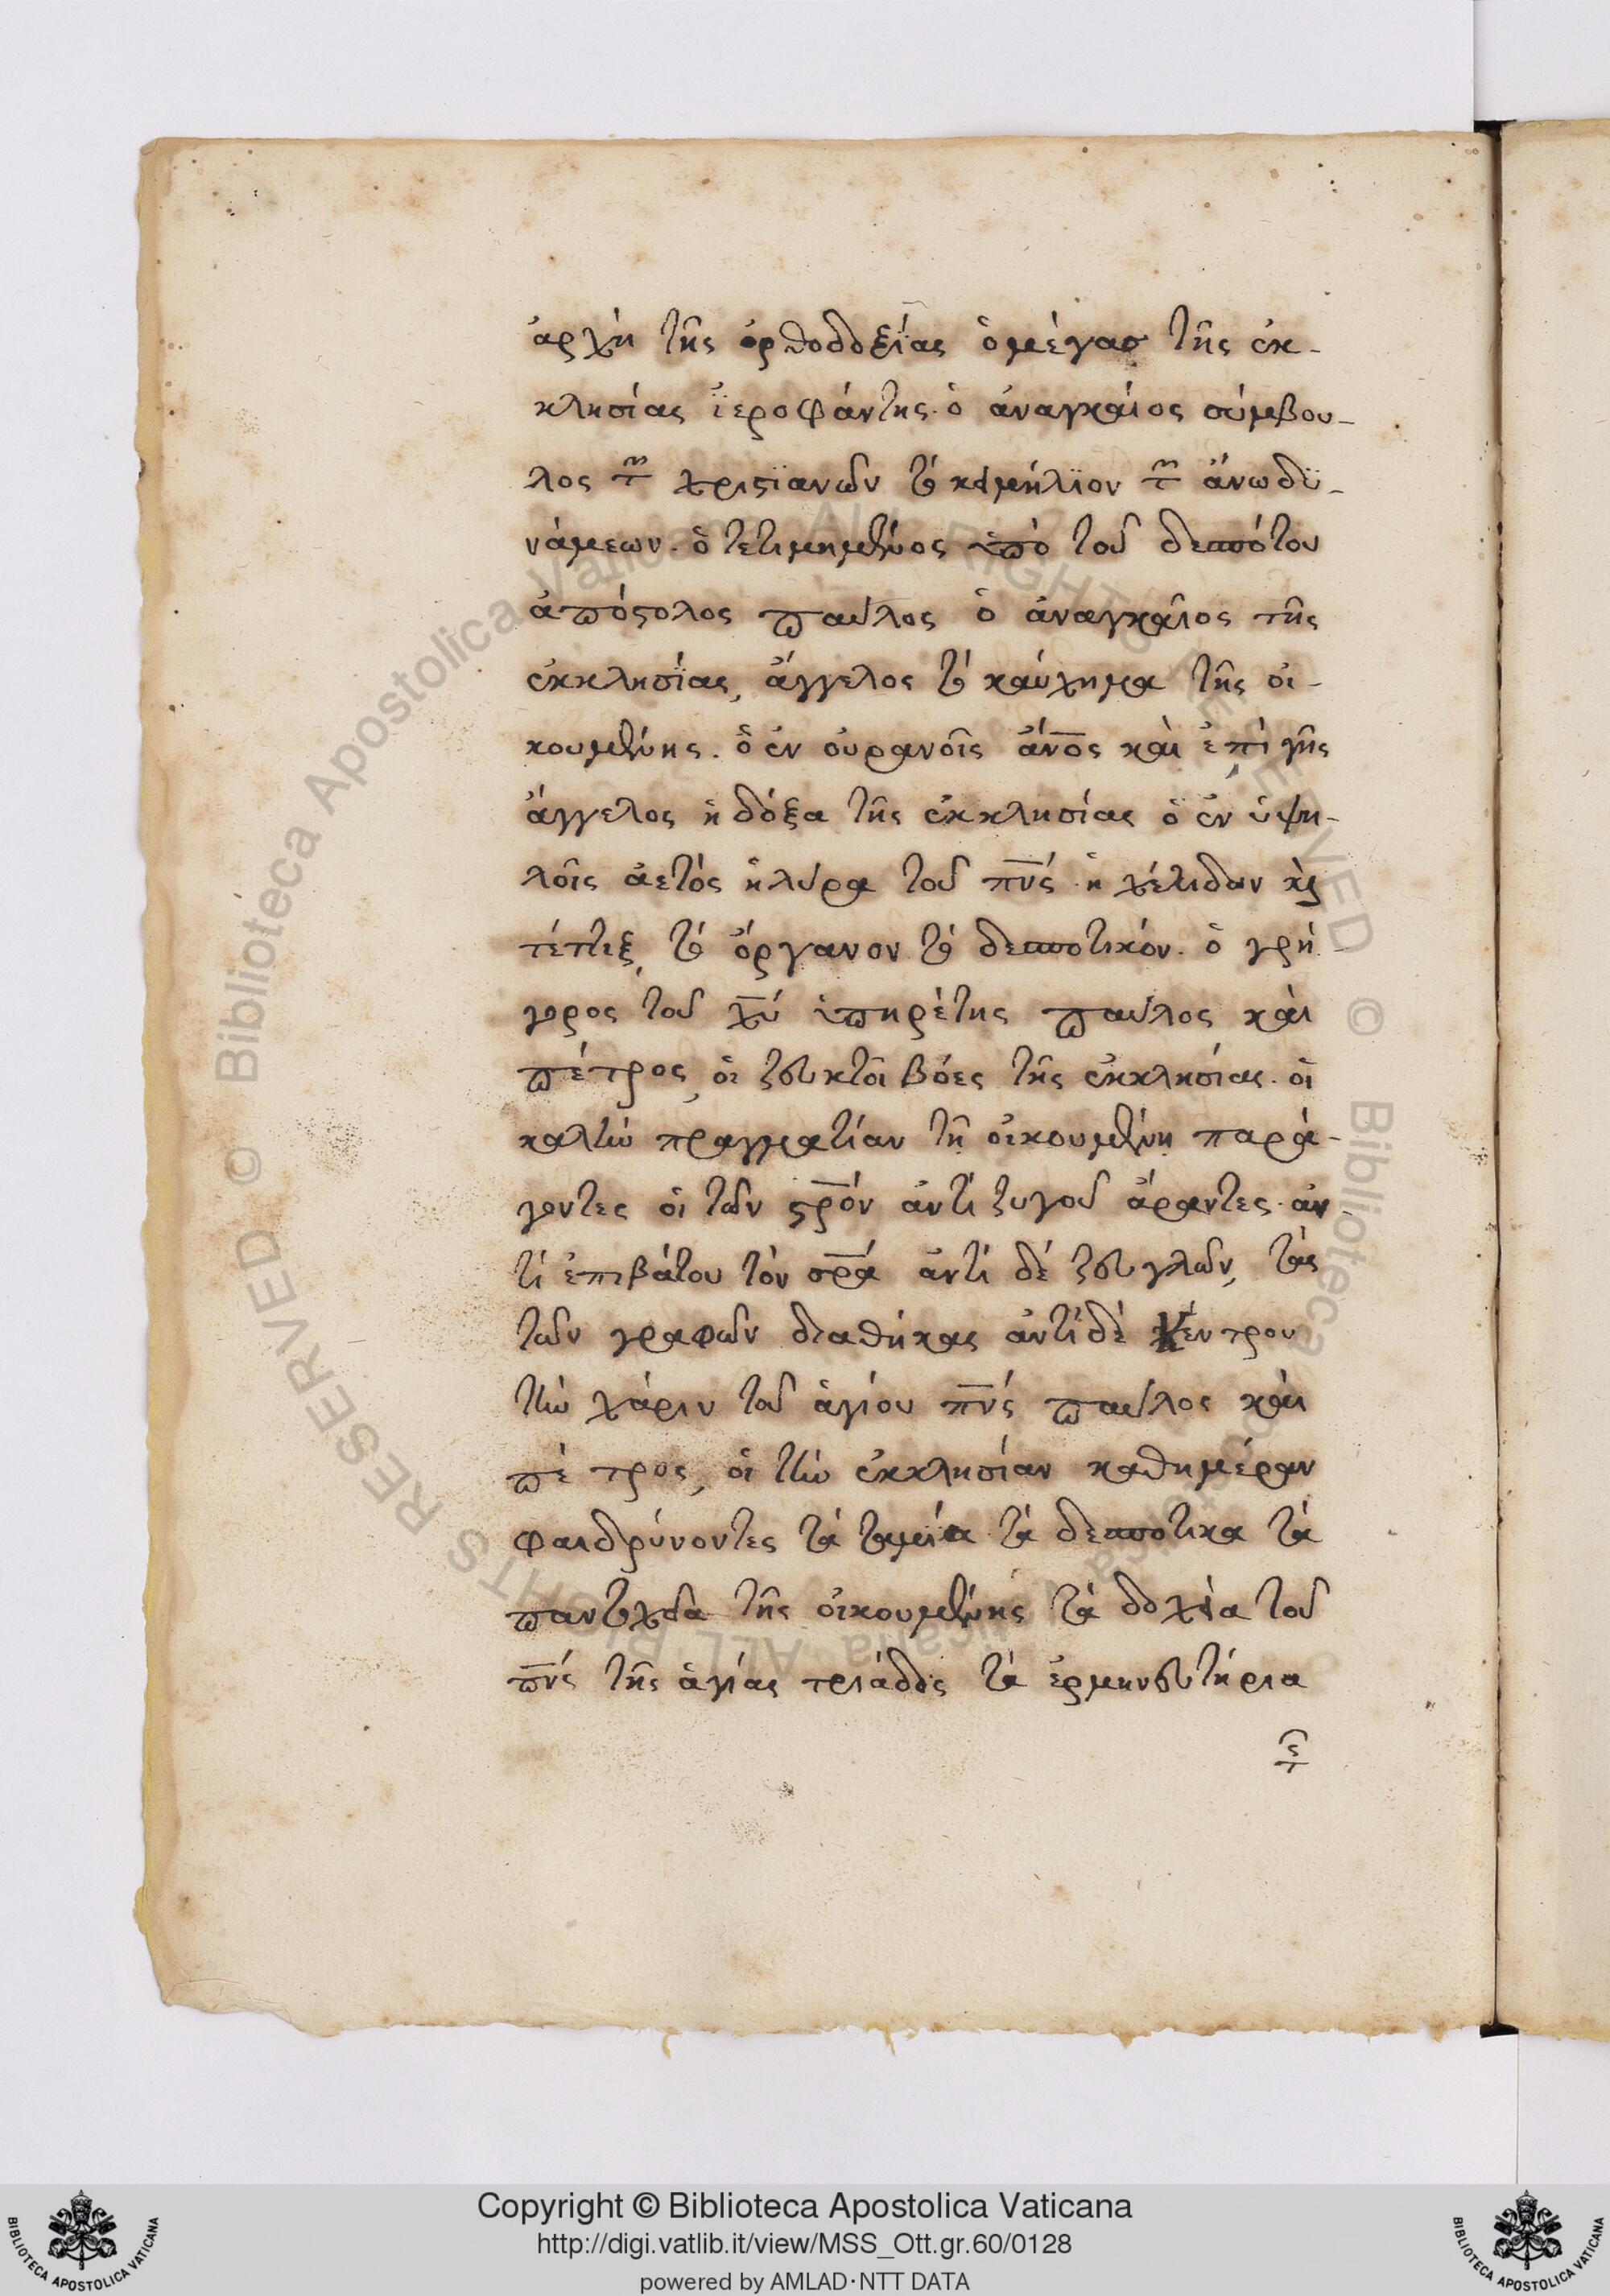 ἀρχὴ τῆς ὀρθοδοξΐας ὁ μέγας τῆς ἐκ-
κλησίας ἱεροφάντης· ὁ ἀναγκάιος σύμβου-
λος τῶν χριστϊανῶν τὸ κειμήλϊον τῶν ἄνω δϋ-
νάμεων· ὁ τετιμημένος ὑπὸ τοῦ δεσπότου
ἀπόστολος παῦλος ὁ ἀναγκαῖος τῆς
ἐκκλησΐας, ἄγγελος τὸ καύχημα τῆς οἰ-
κουμένης· ὁ ἐν οὐρανοῖς ἄνος καὶ ἐπὶ γῆς
ἄγγελος ἡ δόξα τῆς ἐκκλησίας ὁ ἐν ὑψη-
λοῖς ἀετός ἡ λύρα τοῦ πνς ἡ χέλιδων κὶ
τέττιξ, τὸ ὄργανον τὸ δεσποτικόν· ὁ γρή
γορος τοῦ χυ ὑπηρέτης παῦλος καὶ
πέτρος, οἱ ζευκτοὶ βόες τῆς ἐκκλησίας· οἱ
καλὴν πραγματίαν τῇ οἰκουμένῃ παρά-
γοντες οἱ τὸν στρόν ἀντὶ ζυγοῦ ἄραντες· ἀν
τί ἐπιβάτου τὸν σρα ἀντὶ δέ ζευγλῶν, τάς
τῶν γραφῶν διαθήκας ἀντὶ δὲ κέντρου
τὴν χάριν τοῦ ἁγίου πνς παῦλος καὶ
πέτρος, οἱ τὴν ἐκκλησίαν καθημέραν
φαιδρύνοντες τά ταμεῖα τά δεσποτικα τά
πανδοχεῖα τῆς οἰκουμένης τά δοχεῖα τοῦ
πνς τῆς ἁγίας τριάδος τά ἑρμηνευτήρια
Copyright © Biblioteca Apostolica Vaticana
http://digi.vatlib.it/view/MSS_Ott.gr.60/0128
powered by AMLAD·NTT DATA